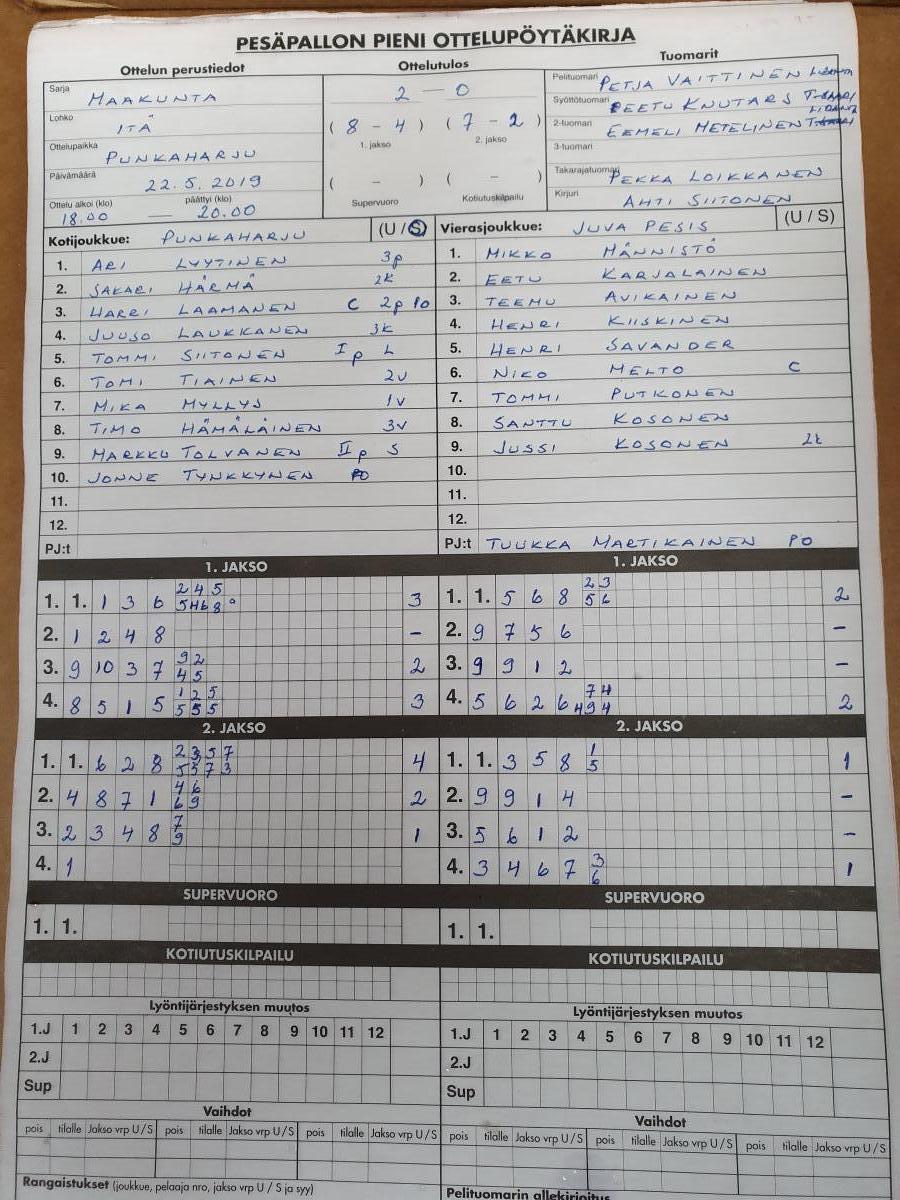 PESÄPALLON PIENI OTTELUPÖYTÄKIRJA
Ottelun perustiedot
Sarja MAAKUNTA
Lohko ITÄ
Ottelupaikka PUNKAHARJU
Päivämäärä 22.5.2019
Ottelu alkoi (klo) päättyi (klo)
18.00 — 20.00
Ottelutulos
2 — 0
( 8 - 4 ) ( 7 - 2 )
1. jakso 2. jakso
( - ) ( - )
Supervuoro Kotiutuskilpailu
Tuomarit
Pelituomari PETJA VAITTINEN
Syöttötuomari EETU KNUTARS
2-tuomari EEMELI METELINEN
3-tuomari
Takarajatuomari PEKKA LOIKKANEN
Kirjuri AHTI SIITONEN
Kotijoukkue: PUNKAHARJU (U / S)
1. ARI LYYTINEN 3p
2. SAKARI HÄRMÄ 2k
3. HARRI LAAMANEN C 2p 10
4. JUUSO LAUKKANEN 3k
5. TOMMI SIITONEN I p L
6. TOMI TIAINEN 2v
7. MIKA MYLLYS 1v
8. TIMO HÄMÄLÄINEN 3v
9. MARKKU TOLVANEN II p S
10. JONNE TYNKKYNEN PO
11.
12.
PJ:t
Vierasjoukkue: JUVA PESIS (U / S)
1. MIKKO MÄNNISTÖ
2. EETU KARJALAINEN
3. TEEMU AVIKAINEN
4. HENRI KIISKINEN
5. HENRI SAVANDER
6. NIKO MELTO C
7. TOMMI PUTKONEN
8. SANTTU KOSONEN
9. JUSSI KOSONEN 2k
10.
11.
12.
PJ:t TUUKKA MARTIKAINEN PO
1. JAKSO
1. 1. 1 3 6 2 4 5 3
5 4 6 8
2. 1 2 4 8 –
3. 9 10 3 7 9 2 2
4 5
4. 8 5 1 5 1 2 5 3
5 5 5
2. JAKSO
1. 1. 6 2 8 2 3 5 7 4
5 5 7 3
2. 4 8 7 1 4 6 2
6 9
3. 2 3 4 8 7 1
9
4. 1
SUPERVUORO
1. 1.
KOTIUTUSKILPAILU
Lyöntijärjestyksen muutos
1.J 1 2 3 4 5 6 7 8 9 10 11 12
2.J
Sup
Vaihdot
pois tilalle Jakso vrp U/S pois tilalle Jakso vrp U/S pois tilalle Jakso vrp U/S
Rangaistukset (joukkue, pelaaja nro, jakso vrp U / S ja syy)
1. JAKSO
1. 1. 5 6 8 2 3 2
5 6
2. 9 7 5 6 –
3. 9 9 1 2 –
4. 5 6 2 6 7 4 2
4 9 4
2. JAKSO
1. 1. 3 5 8 1 1
5
2. 9 9 1 4 –
3. 5 6 1 2 –
4. 3 4 6 7 3 1
6
SUPERVUORO
1. 1.
KOTIUTUSKILPAILU
Lyöntijärjestyksen muutos
1.J 1 2 3 4 5 6 7 8 9 10 11 12
2.J
Sup
Vaihdot
pois tilalle Jakso vrp U/S pois tilalle Jakso vrp U/S pois tilalle Jakso vrp U/S
Pelituomarin allekirjoitus